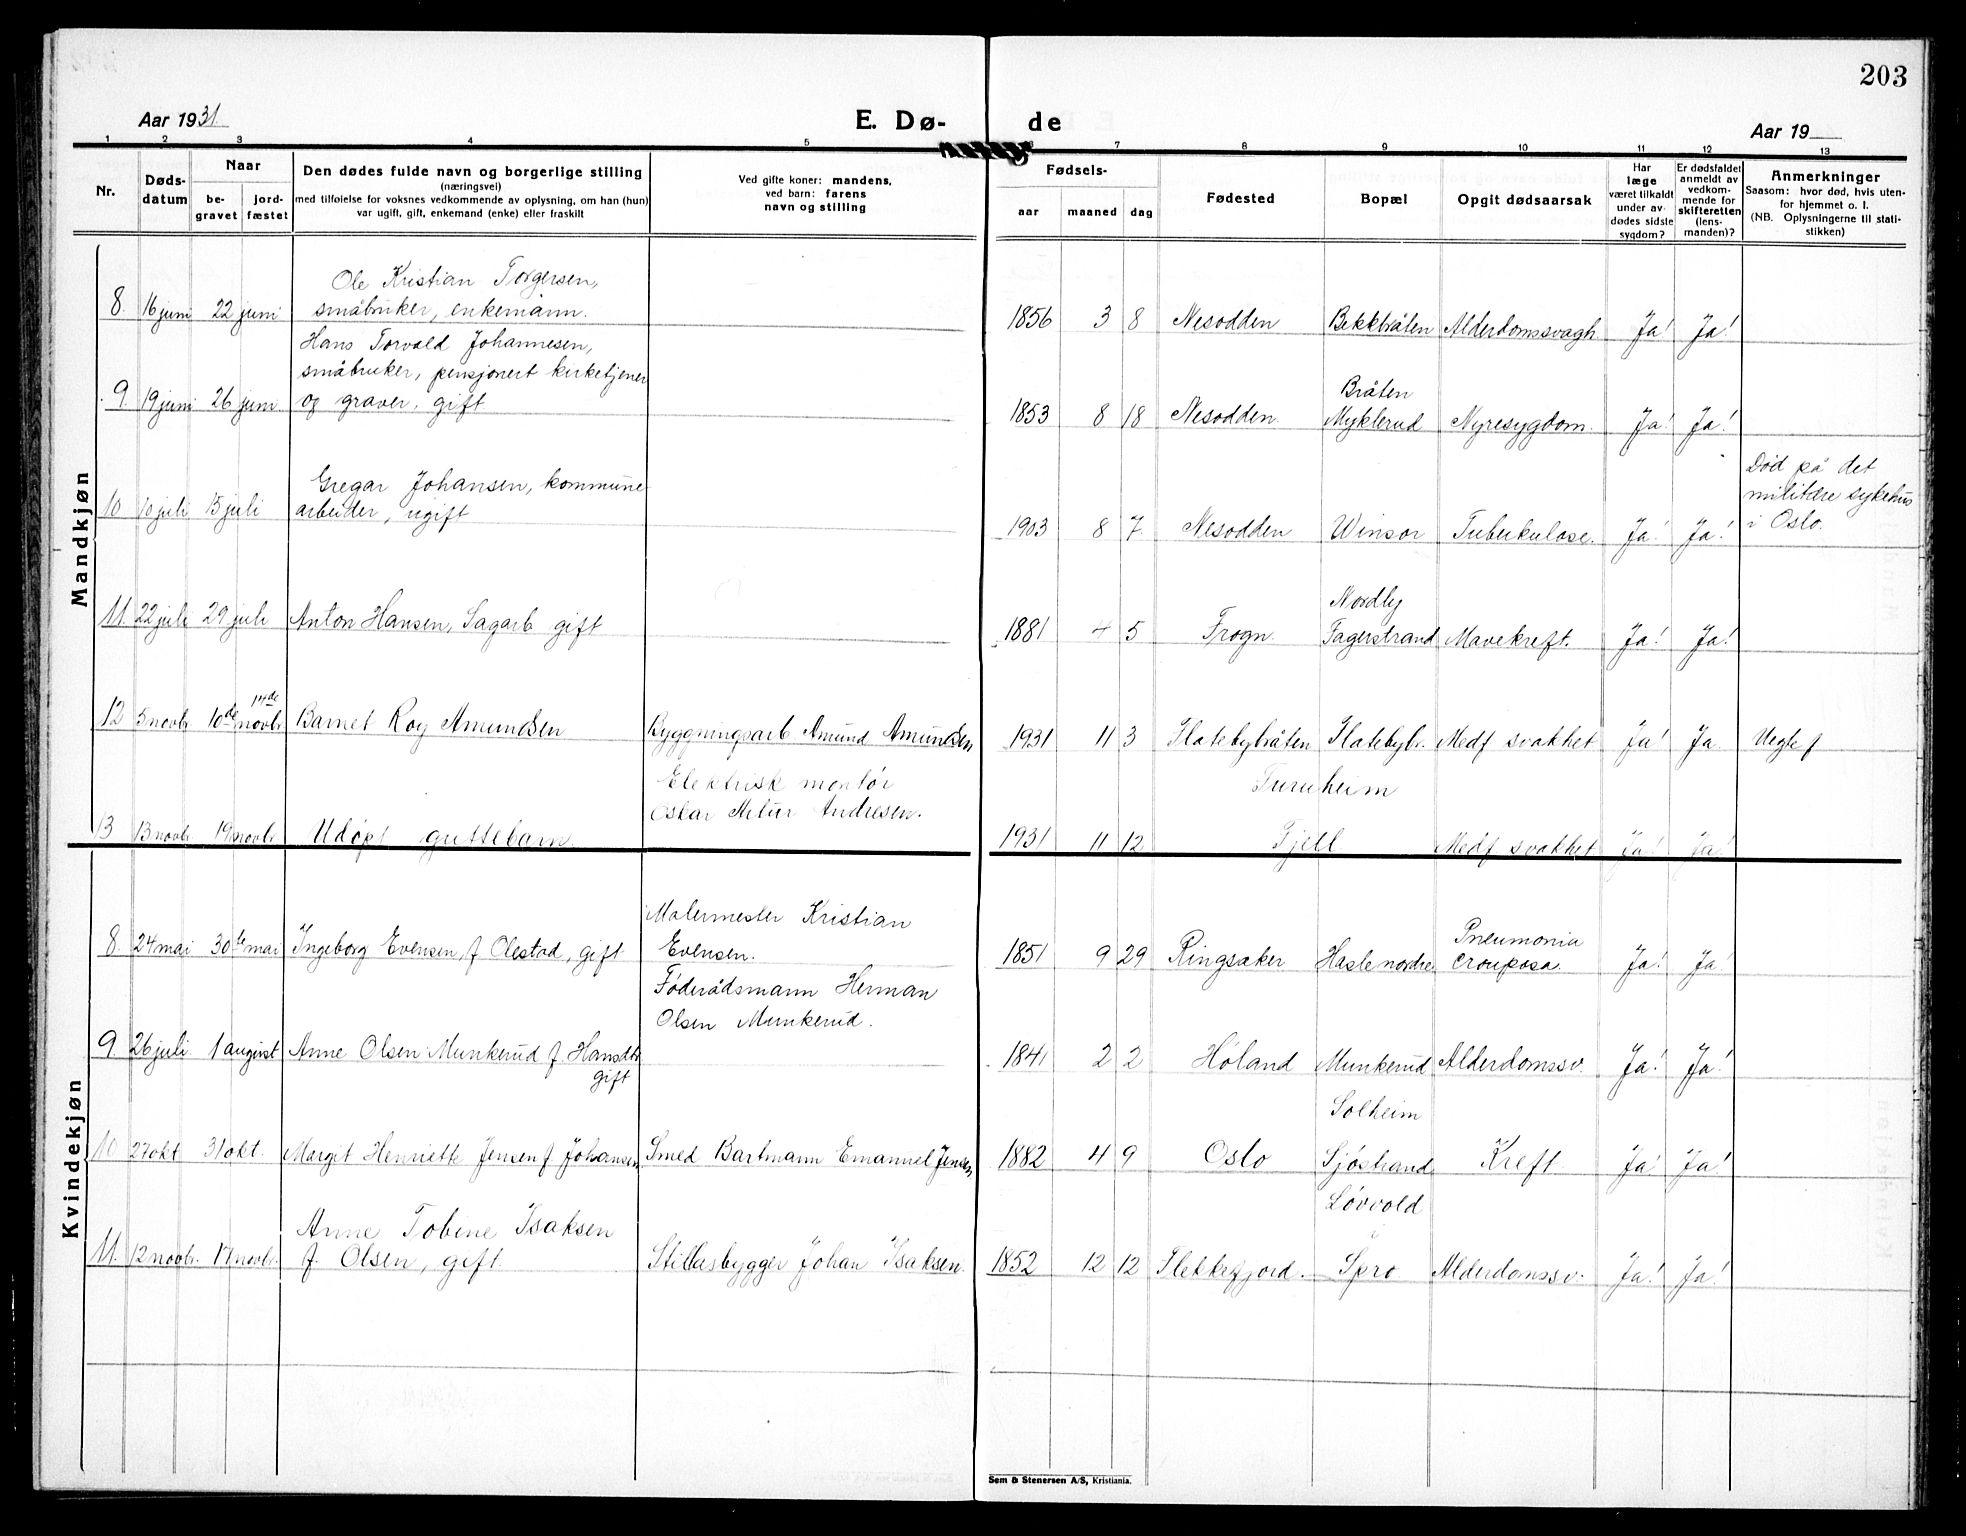 203
Aar 1931
E. Dø-
de
Aar 19
1 2 3 4 5 7 8 9 10 11 12 13
Nr.
Døds-
datum
Naar
be-
gravet
jord-
fæstet
Den dødes fulde navn og borgerlige stilling
(næringsvei)
med tilføielse for voksnes vedkommende av oplysning, om han (hun)
var ugift, gift, enkemand (enke) eller fraskilt
Ved gifte koner: mandens,
ved barn: farens
navn og stilling
Fødsels-
aar maaned dag
Fødested
Bopæl
Opgit dødsaarsak
Har
læge
været tilkaldt
under av-
dødes sidste
sygdom?
Er dødsfaldet
anmeldt av
vedkom-
mende for
skifteretten
(lens-
manden)?
Anmerkninger
Saasom: hvor død, hvis uten-
for hjemmet o. l.
(NB. Oplysningerne til stati-
stikken)
Mandkjøn
Ole Kristian Torgersen,
8. 16 juni 22 juni småbruker, enkemann. 1856 3 8 Nesodden Bekkbråten Alderdomssvagh. Ja! Ja!
Hans Torvald Johannesen,
småbruker, pensjonert kirketjener
Bråten
9. 19 juni 26 juni og graver, gift 1853 8 18 Nesodden. Myklerud Nyresygdom. Ja! Ja!
Død på det
militære sykehus
i Oslo.
Gregar Johansen, kommune
10 10 juli 15 juli arbeider, ugift 1903 8 7. Nesodden Winsor Tuberkulose. Ja! Ja!
Nordby
11. 22 juli 29 juli Anton Hansen, Sagarb gift 1881 4 5 Frogn. Fagerstrand Mavekreft. Ja! Ja!
14de
12 5 novbr. 10de novbr. Barnet Roy Amundsen Byggningsarb Amund Amundsen 1931 11 3 Flatebybråten Flatebybr. Medf svakhet Ja! Ja. Uegte f
Elektrisk montør
Oskar Artur Andresen.
Furuheim
13 13 novbr. 19 novbr. Udøpt guttebarn. 1931 11 12 Fjell Medf svakhet Ja! Ja!
Kvindekjøn
Malermester Kristian
Evensen.
Pneumonia
crouposa.
8. 24 mai 30te mai Ingeborg Evensen, f Olestad, gift 1851 9 29 Ringsaker Hasle nordre. Ja! Ja!
Føderådsmann Herman
Olsen Munkerud.
9. 26 juli 1 august Anne Olsen Munkerud f. Hansdtr
gift 1841 2 2 Høland Munkerud Alderdomssv. Ja! Ja!
Solheim
10 27 okt 31 okt. Margit Henriette Jensen f Johansen Smed Bartmann Emanuel Jensen 1882 4 9 Oslo Sjøstrand Kreft Ja! Ja!
Løvvold
Anne Tobine Isaksen
11. 12 novbr. 17 novbr. f. Olsen, gift. Stillasbygger Johan Isaksen. 1852 12 12 Flekkefjord. Spro Alderdomssv. Ja! Ja!
Sem & Stenersen A/S, Kristiania.